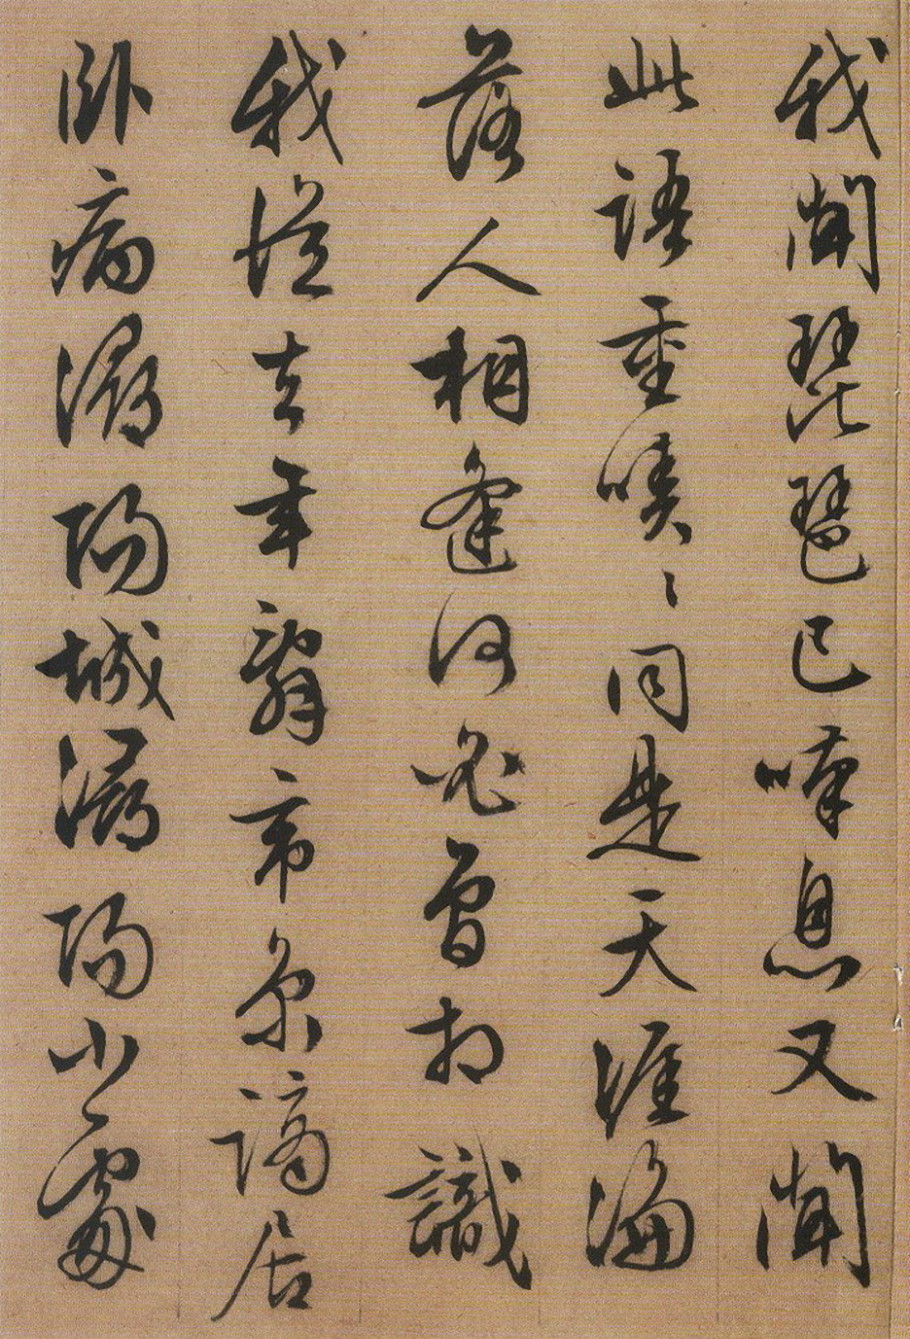 我聞琵琶已嘆息又聞
此語重嘖〻同是天涯淪
落人相逢何必曾相識
我從去年辭帝京謫居
臥病潯陽城潯陽小處